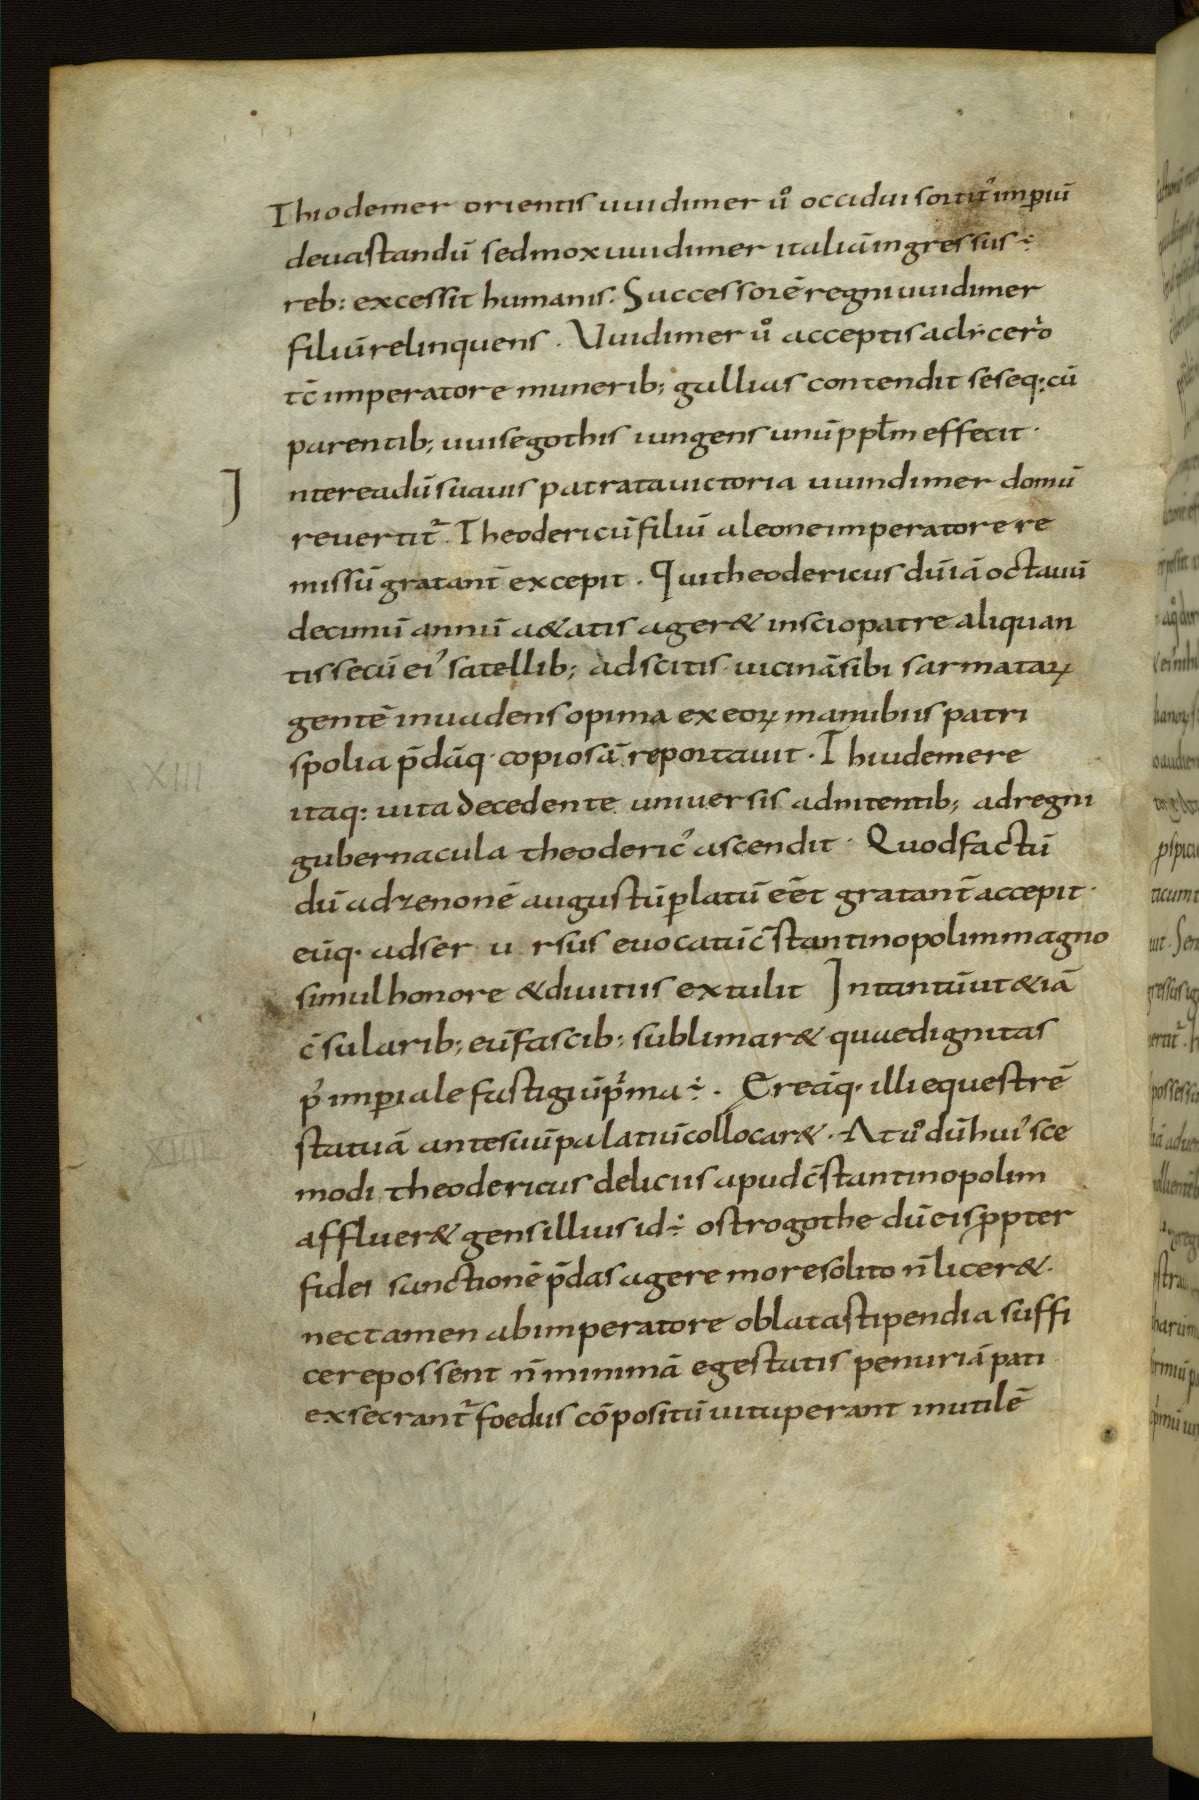 Thiodemer orientis uuidimer ů occidui sortit᷒ imꝑiū
deuastandū sed mox uuidimer italiā ingressus ÷
reb: excessit humanis. Successorē regni uuidimer
filiū relinquens. Uuidimer ů acceptis ad
tē imperatore munerib; gallias contendit seseq: cū
parentib; uuisegothis iungens unū ppl̄m effecit.
Interea dū suauis patrata uictoria uuindimer domū
reuertit᷒. Theodericū filiū a leone imperatore re
missū gratant̄ excepit. Qui theodericus dū iā octauū
decimū annū a&atis ager& inscio patre aliquan
tis secū ei᷒ satellib; adscitis uicinā sibi sarmataꝝ
gentē inuadens opima ex eoꝝ manubiis patri
spolia p̄dāq· copiosā reportauit. Thiudemere
XIII
itaq: uita decedente uniuersis adnitentib; ad regni
gubernacula theoderic᷒ ascendit. Quod factū
dū ad zenonē augustū ꝑlatū eēt gratant̄ accepit.
eūq· ad se r u rsus euocatū c̄stantinopolim magno
simul honore & diuitiis extulit Intantū ut & iā
c̄sularib; eū fascib; sublimar& quae dignitas
p᷒ imꝑiale fastigiū p̓ma ÷. Ereāq· illi equestrē
statuā ante suū palatiū collocar&. At ů dū hui᷒sce
XIIII
modi theodericus deliciis apud c̄stantinopolim
affluer& gens illius id ÷ ostrogothe dū eis ꝓpter
fidei sanctionē p̄das agere more solito n̄ licer&.
nec tamen ab imperatore oblata stipendia suffi
cere possent n̄ minimā egestatis penuriā pati
exsecrant᷒ foedus cōpositū uituperant inutilē